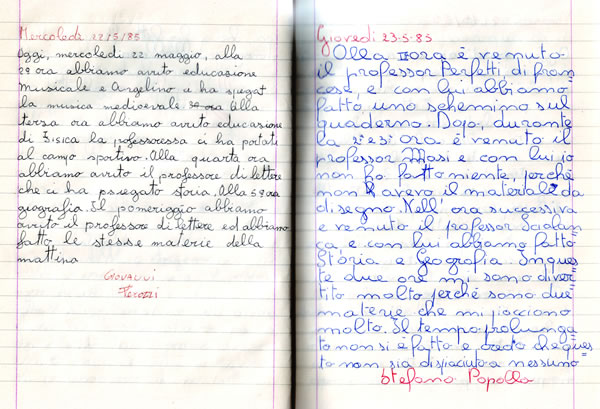 Mercoledì 22/5/85
Oggi, mercoledì 22 maggio, alla
2ª ora abbiamo avuto educazione
musicale e Angelino ci ha spiegat
la musica medioevale 3ª ora alla
terza ora abbiamo avuto educazione
di Fisica la professoressa ci ha portati
al campo sportivo. Alla quarta ora
abbiamo avuto il professore di lettere
che ci ha spiegato storia. Alla 5ª ora
giografia. Il pomeriggio abbiamo
avuto il professore di lettere ed abbiamo
fatto le stesse materie della
mattina
Giovanni
Ferozzi
Giovedì 23-5-85
Alla II ora è venuto
il professor Perfetti, di fran
cese, e con lui abbiamo
fatto uno schemino sul
quaderno. Dopo, durante
la ora è venuto il
professor Masi e con lui io
non ho fatto niente, perché
non avevo il materiale da
disegno. Nell' ora successiva
è venuto il professor
ca e con lui abbiamo fatto
Storia e Geografia. In ques
te due ore mi sono diver
tito molto perché sono due
materie che mi piacciono
molto. Il tempo prolunga
to non si è fatto e credo che ques
to non sia dispiaciuto a nessuno
Stefano Popolla